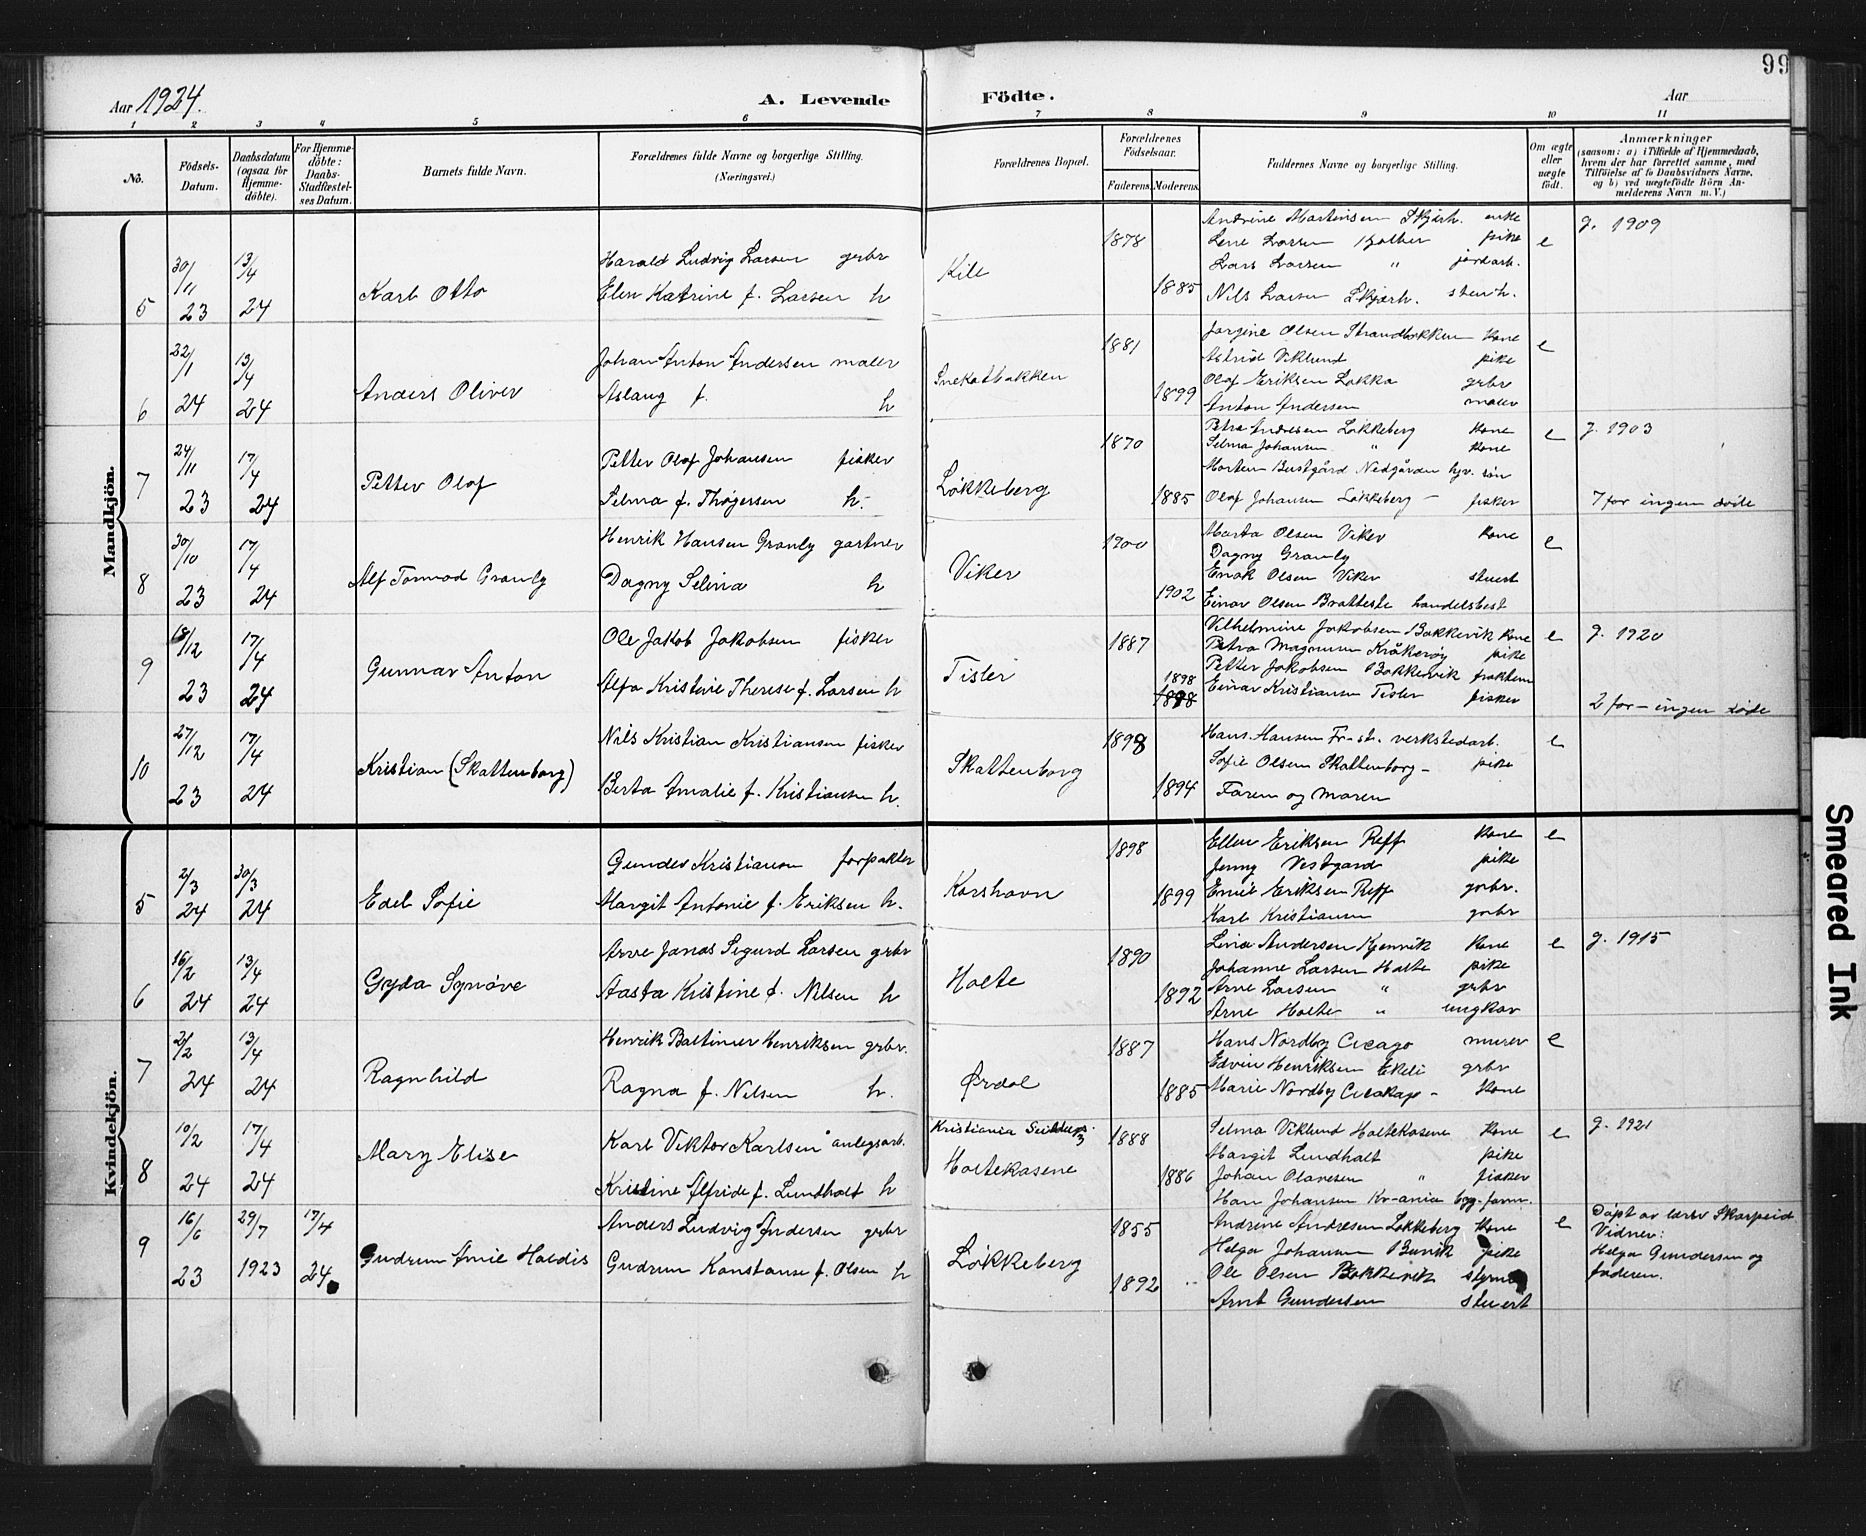 99
Aar 1924.
A. Levende Födte.
Aar
1 2 3 4 5 6 7 8 9 10 11
No.
Födsels-Datum.
Daabsdatum (ogsaa for Hjemme-döbte).
For Hjemme-döbte: Daabs-Stadfæstel-ses Datum.
Barnets fulde Navn.
Forældrenes fulde Navne og borgerlige Stilling.
(Næringsvei.)
Forældrenes Bopæl.
Forældrenes Födselsaar.
Faderens. Moderens.
Faddernes Navne og borgerlige Stilling.
Om ægte eller uægte födt.
Anmærkninger
(saasom: a) i Tilfælde af Hjemmedaab,
hvem der har forrettet samme, med
Tilföielse af to Daabsvidners Navne,
og b) ved uægtefödte Börn An-
melderens Navn m. V.)
Mandkjön.
5 30/11 23 13/4 24 Karl Otto
Harald Ludvig Larsen grbr
Elen Katrine f. Larsen h
Kile 1878 1885
Andrine Martinsen Skjærh. enke
Lene Larsen Holther pike
Lars Larsen " jordarb.
Nils Larsen Skjærh. stenh.
e g. 1909
6 22/1 24 13/4 24 Anders Oliver
Johan Anton Andersen maler
Aslaug f. h
Snekotbakken 1881 1899
Jørgine Olsen Strandbakken kone
Astrid Viklund pike
Olaf Eriksen Løkka grbr
Anton Andersen maler
e
7 24/11 23 17/4 24 Petter Olaf
Petter Olaf Johansen fisker
Selma f. Thøgersen h.
Løkkeberg 1870 1885
Petra Andresen Løkkeberg kone
Selma Johansen " kone
Morten Bustgård Nedgården hjv. søn
Olaf Johansen Løkkeberg – fisker
e g. 1903
7 før ingen døde
8 30/10 23 17/4 24 Alf Tormod Granly
Henrik Hansen Granly gartner
Dagny Selma h
Viker 1900 1902
Marta Olsen Viker kone
Dagny Granly
Enok Olsen Viker stuert
Einar Olsen Bratteste handelsbest
e
9 18/12 23 17/4 24 Gunnar Anton
Ole Jakob Jakobsen fisker
Alfa Kristine Therese f. Larsen h
Tisler 1887 1898
Vilhelmine Jakobsen Bakkevik kone
Petra Magnussen Kråkerøy pike
Petter Jakobsen Bakkevik fraktem
Einar Kristiansen Tisler fisker
e g. 1920
2 før – ingen døde
10 27/12 23 17/4 24 Kristian (Skattenborg)
Nils Kristian Kristiansen fisker
Berta Amalie f. Kristiansen h.
Skattenborg 1898 1894
Hans Hansen Fr-st. verkstedarb.
Sofie Olsen Skattenborg – pike
Faren og moren
e
Kvindekjön.
5 2/3 24 30/3 24 Edel Sofie
Gunder Kristiansen forpakter
Margit Antonie f. Eriksen h.
Korshavn 1898 1899
Ellen Eriksen Reff kone
Jenny Vestgaard pike
Emil Eriksen Reff grbr.
Karl Kristiansen grbr
e
6 16/2 24 13/4 24 Gyda Synøve
Arve Jonas Sigurd Larsen grbr
Aasta Kristine f. Nilsen h
Holte 1890 1892
Lina Andersen Kjennvik kone
Johanne Larsen Holte pike
Arve Larsen " grbr
Arne Holte " ungkar
e g. 1915
7 2/2 24 13/4 24 Ragnhild
Henrik Baltinier Henriksen grbr.
Ragna f. Nilsen h.
Ørdal 1887 1885
Hans Nordby Cicago murer
Edvin Henriksen Ekeli grbr
Marie Nordby – kone
e
8 10/2 24 17/4 24 Mary Elise
Karl Viktor Karlsen anlegsarb.
Kristine Alfride f. Lundholt h
Kristiania
Holtekasene 1888 1886
Selma Viklund Holtekasene kone
Margit Lundholt pike
Johan Olavesen " fisker
Han Johansen Kr-ania
e g. 1921
9 16/6 23 29/7 1923 17/4 24 Gudrun Amie Haldis
Anders Ludvig Andersen grbr
Gudrun Konstanse f. Olsen h
Løkkeberg 1855 1892
Andrine Andresen Løkkeberg kone
Helga Johansen pike
Ole Olsen Bakkevik
Arnt Gundersen stuert
e
Døpt av lærer Skarpeid
Vidner:
Helga Gundersen og
faderen.
Smeared Ink